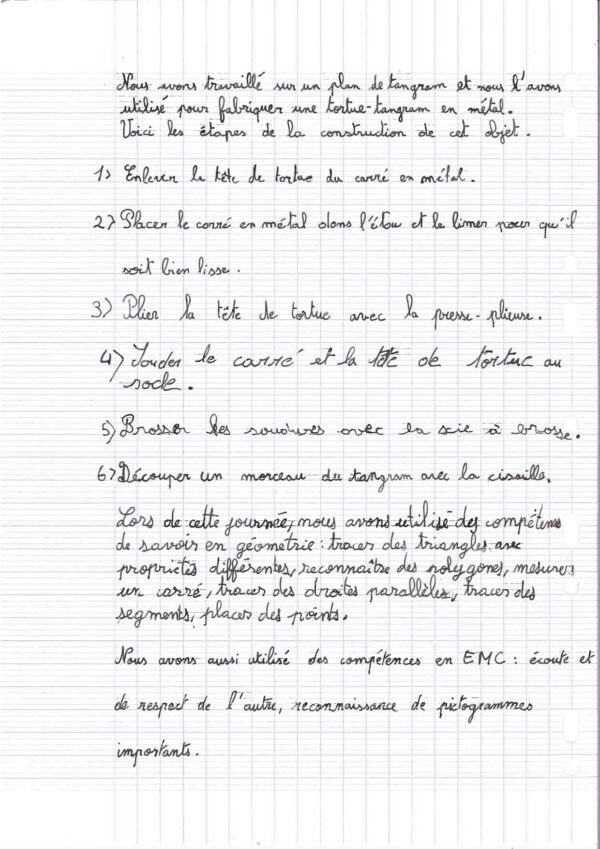 Nous avons travaillé sur un plan de tangram et nous l'avons
utilisé pour fabriquer une tortue-tangram en métal.
Voici les étapes de la construction de cet objet.
1) Enlever la tête de tortue du carré en métal.
2) Placer le carré en métal dans l'étau et le limer pour qu'il
soit bien lisse.
3) Plier la tête de tortue avec la presse-plieuse.
4) Souder le carré et la tête de tortue au
socle.
5) Brosser les soudures avec la scie à brosse.
6) Découper un morceau du tangram avec la cisaille.
Lors de cette journée, nous avons utilisé des compétences
de savoir en géométrie : tracer des triangles avec
propriétés différentes, reconnaître des polygones, mesurer
un carré, tracer des droites parallèles, tracer des
segments, placer des points.
Nous avons aussi utilisé des compétences en EMC : écoute et
de respect de l'autre, reconnaissance de pictogrammes
importants.